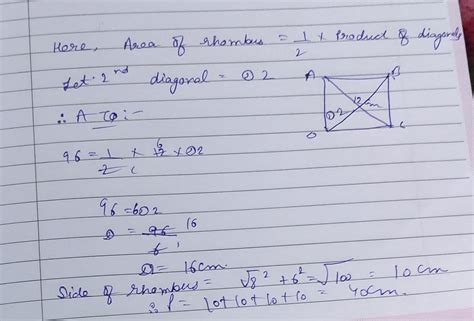 Here, Area of rhombus = 1/2 × Product of diagonals
Let 2nd diagonal = D2
∴ A TQ :-
A B
12 cm
D2
D C
96 = 1/2 × 12 6 × D2
96 = 6D2
D = 96/6 16 1
D = 16cm.
Side of rhombus = √8² + 6² = √100 = 10 cm
∴ P = 10+10+10+10 = 40cm.